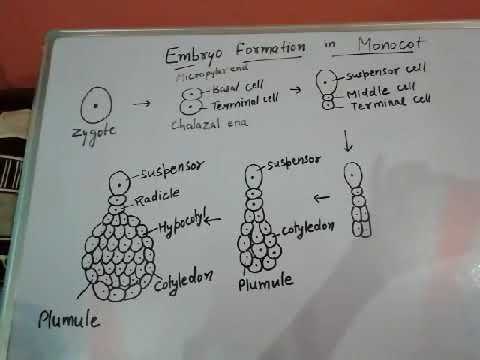 Embryo Formation in Monocot
Micropylar end
Basal cell
Terminal cell
Chalazal end
Zygote
Suspensor cell
Middle cell
Terminal cell
Suspensor
Radicle
Hypocotyl
Cotyledon
Plumule
Suspensor
Cotyledon
Plumule